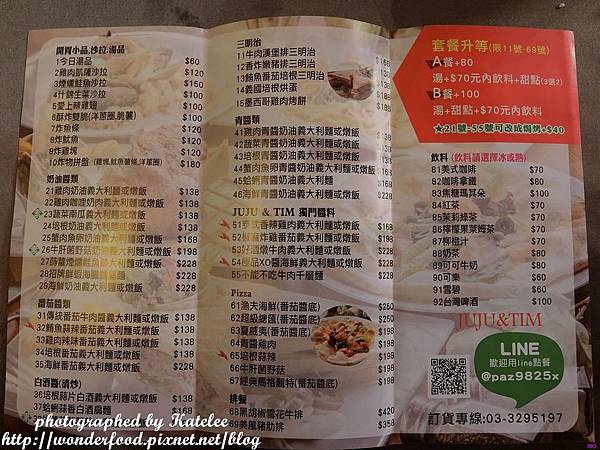 開胃小品,沙拉,湯品
1今日湯品 $60
2雞肉凱薩沙拉 $120
3煙燻鮭魚沙拉 $150
4什錦生菜沙拉 $100
5愛上辣雞翅 $100
6酥炸雙脆(洋蔥圈,脆薯) $100
7炸魚條 $120
8炸魷魚 $120
9炸雞塊 $120
10炸物拼盤(雞塊,魷魚薯條,洋蔥圈) $180
奶油醬類
21雞肉奶油義大利麵或燉飯 $138
22雞肉咖哩奶油義大利麵或燉飯 $138
23蔬菜南瓜義大利麵或燉飯 $138
24培根奶油義大利麵或燉飯 $138
25蟹肉魚卵奶油義大利麵或燉飯 $168
26牛肝菌野菇奶油義大利麵或燉飯 $198
27蒔蘿煙燻鮭魚義大利麵或燉飯 $228
28招牌鮮蝦海膽義大利麵 $228
29海鮮奶油義大利麵或燉飯 $228
番茄醬類
31傳統番茄牛肉醬義大利麵或燉飯 $138
32鮪魚蒜辣番茄義大利麵或燉飯 $138
33雞肉辣味番茄義大利麵或燉飯 $138
34培根番茄義大利麵或燉飯 $138
35海鮮番茄義大利麵或燉飯 $228
白酒醬(清炒)
36培根蒜片白酒義大利麵或燉飯 $138
37蛤蜊蒜香白酒扁麵 $168
三明治
11牛肉漢堡排三明治 $168
12香炸嫩豬排三明治
13鮪魚番茄培根三明治
14義國培根烘蛋
15墨西哥雞肉烤餅 $168
青醬類
41雞肉青醬奶油義大利麵或燉飯
42蔬菜青醬奶油義大利麵或燉飯
43培根青醬奶油義大利麵或燉飯
44蟹肉魚卵青醬奶油義大利麵或燉飯
45蛤蜊青醬奶油義大利麵 $168
46海鮮青醬奶油義大利麵或燉飯 $228
JUJU & TIM 獨門醬料
51泰式香辣雞肉義大利麵或燉飯
52椒麻炸雞番茄義大利麵或燉飯
53紅酒燉牛肉義大利麵或燉飯
54極品XO醬海鮮義大利麵或燉飯 $228
55不能不吃牛肉千層麵 $228
Pizza
61漁夫海鮮(番茄醬底) $250
62超級總匯(番茄醬底) $250
63夏威夷(番茄醬底) $200
64青醬雞肉
65培根蒜辣
66牛肝菌野菇
67經典馬格麗特(番茄醬底)
排餐
68黑胡椒雪花牛排 $420
69美風豬肋排 $358
套餐升等(限11號-69號)
A餐+80
湯+$70元內飲料+甜點(3選2)
B餐+100
湯+甜點+$70元內飲料
★21號-55號可改成焗烤+$40
飲料(飲料請選擇冰或熱)
81美式咖啡 $70
82咖啡拿鐵 $80
83焦糖瑪其朵 $100
84紅茶 $70
85茉莉綠茶 $70
86檸檬果萊姆茶 $70
87柳橙汁 $70
88奶茶 $80
89可可牛奶 $80
90可樂 $60
91雪碧 $60
92台灣啤酒 $100
JUJU&TIM
LINE
歡迎用line點餐
@paz9825x
訂貨專線:03-3295197
photographed by Katelee
http://wonderfood.pixnet.net/blog